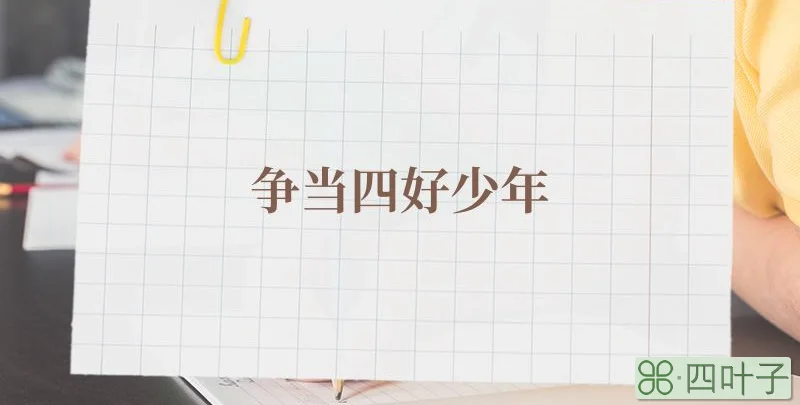 争当四好少年
四叶子